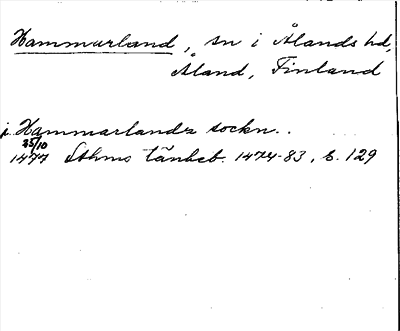 Hammarland, sn i Ålands hd,
Åland, Finland
j Hammarlandz sockn..
25/10
1477 Sthms tänkeb. 1474-83, s. 129